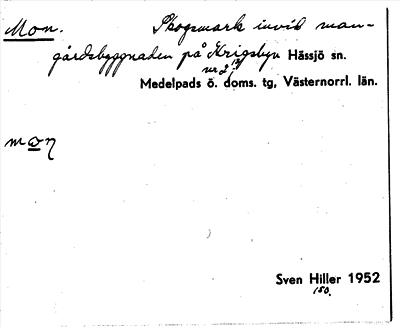 Mon. Skogsmark invid man-
gårdsbyggnaden på Krigsbyn Hässjö sn.
nr 2
Medelpads ö. doms. tg, Västernorrl. län.
mo̲ŋ
Sven Hiller 1952
150.